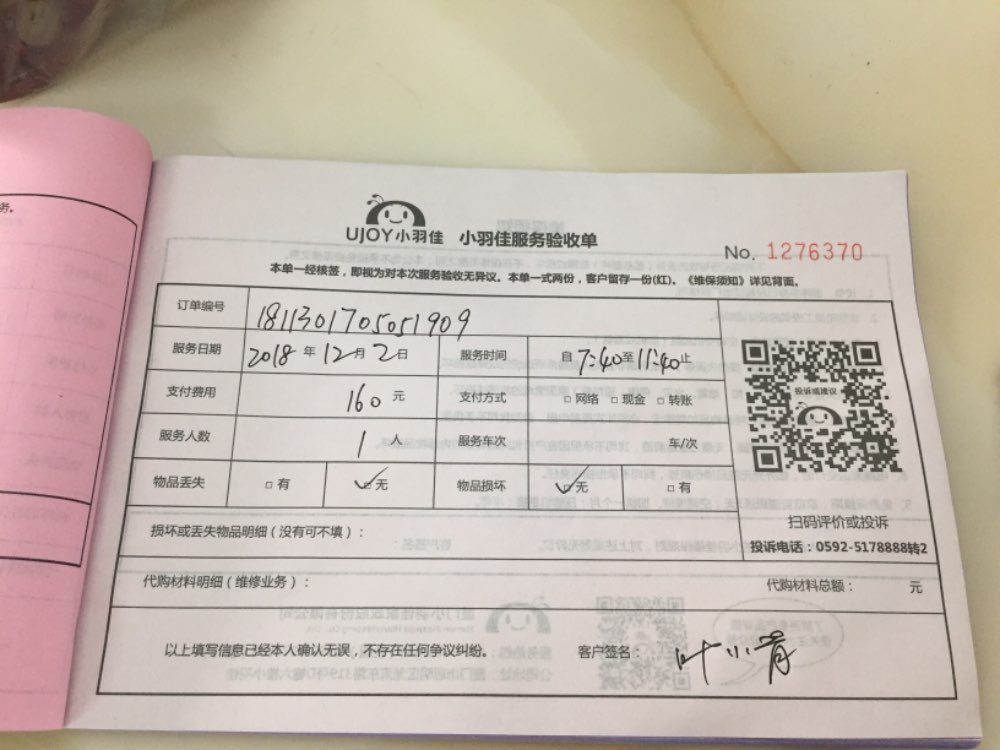 务。
UJOY小羽佳 小羽佳服务验收单
No. 1276370
本单一经核签，即视为对本次服务验收无异议。本单一式两份，客户留存一份(红)。《维保须知》详见背面。
订单编号 1811301705051909
服务日期 2018 年 12 月 2 日 服务时间 自 7:40 至 11:40 止
支付费用 160 元 支付方式 □网络 □现金 □转账
投诉或建议
服务人数 1 人 服务车次 车/次
物品丢失 □有 ☑无 物品损坏 ☑无 □有
扫码评价或投诉
损坏或丢失物品明细（没有可不填）：
投诉电话：0592-5178888转2
代购材料明细（维修业务）： 代购材料总额： 元
以上填写信息已经本人确认无误，不存在任何争议纠纷。 客户签名： 叶小